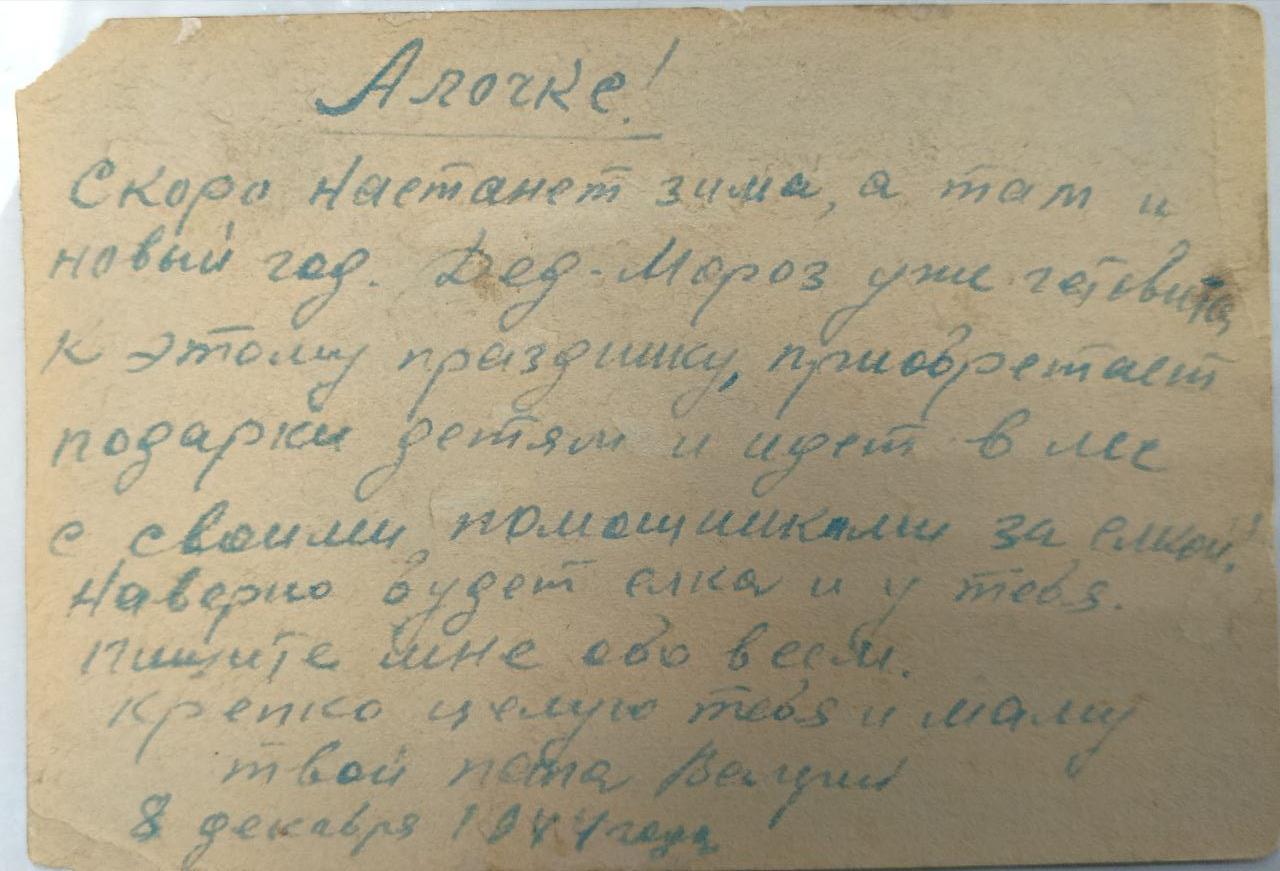 Алочке!
Скоро настанет зима, а там и
новый год. Дед-Мороз уже готовится
к этому празднику, приобретает
подарки детям и идет в лес
с своими помощниками за елкой!
Наверно будет елка и у тебя.
Пишите мне обо всем.
Крепко целую тебя и маму
твой папа
8 декабря 1944 года